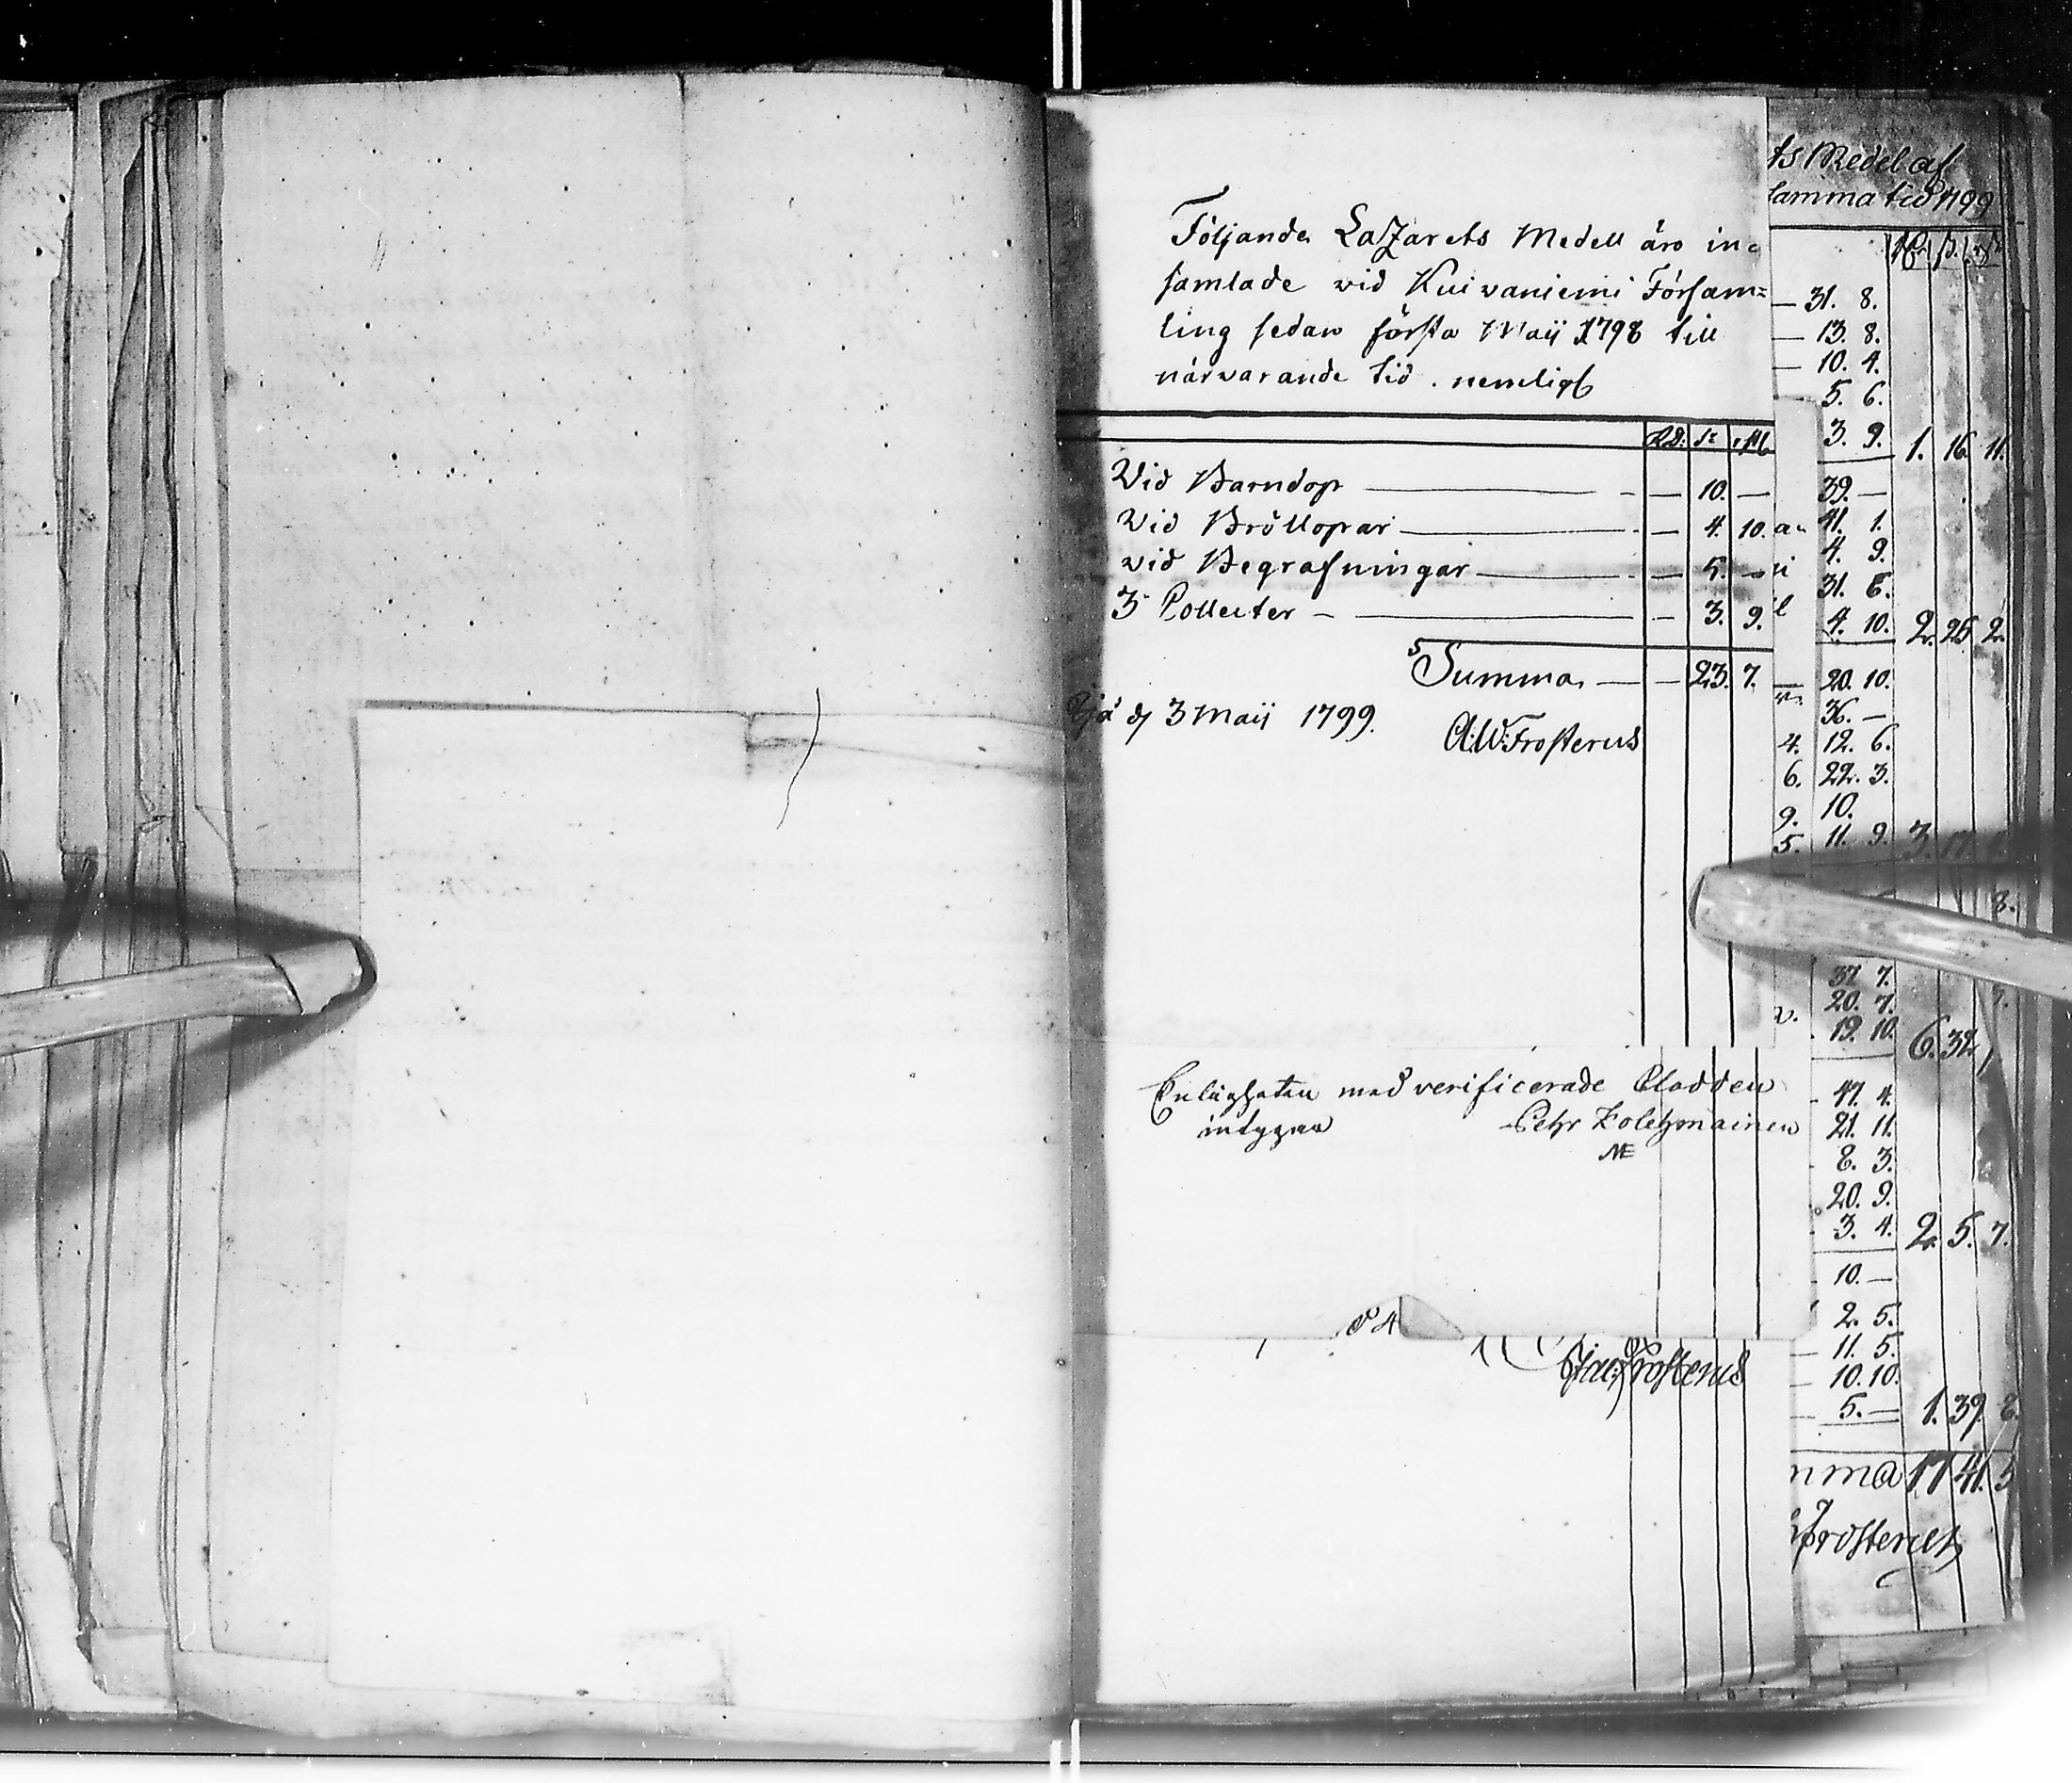 Följande Lazarets Medell äro in=
samlade vid Kuivaniemi Församm=
ling sedan första Maij 1798 till
närvarande tid. nemligt
RD: sz
Vid Barndop — — 10. —
Vid Bröllopar — — 4. 10.
vid Begrafningar — — 5. —
3 Collecter — — 3. 9.
Summa — — 23. 7.
d 3 Maij 1799.
A:W:Frosterus
Enligheten med verificerade Cladden
intygar Pehr Kolehmainen
Frosterus
ts Medel af
samma tid 1799
— 31. 8.
— 13. 8.
— 10. 4.
5. 6.
3. 9. 1. 16. 11.
39. —
41. 1.
4. 9.
31. 6.
4. 10. 2. 25. 2.
20. 10.
36. —
4. 12. 6.
6. 22. 3.
9. 10.
5. 11. 9. 3.
8.
37. 7.
20. 7.
19. 10. 6. 32.
47. 4.
21. 11.
8. 3.
20. 9.
3. 4. 2. 5. 7.
10. —
2. 5.
11. 5.
10. 10.
5. — 1. 39. 8.
mma 17 41. 5
Frosterus